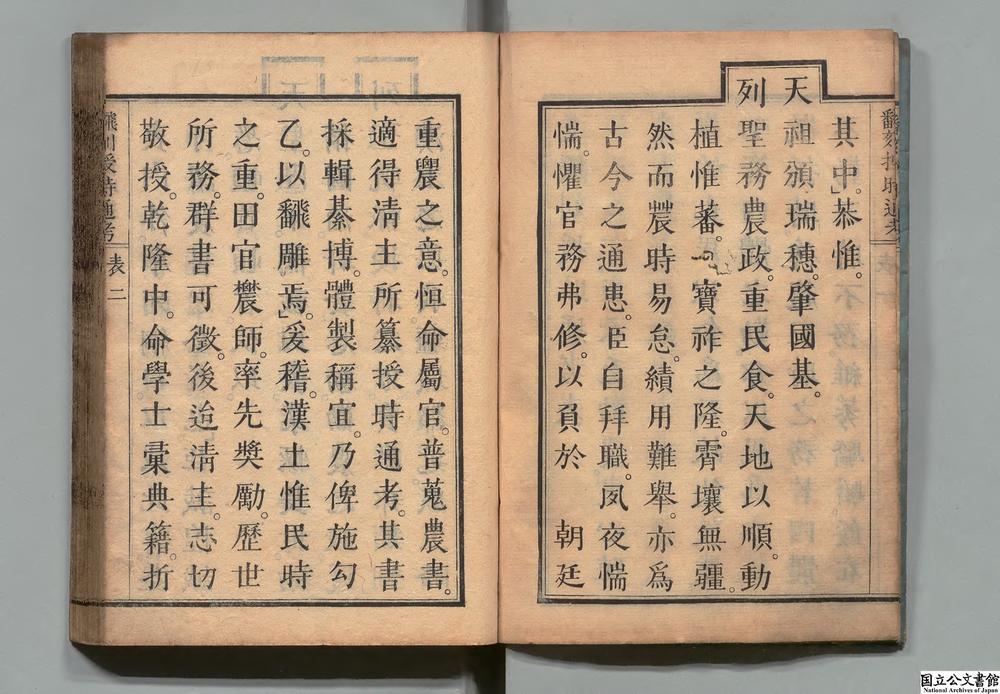 其中」恭惟。
天祖頒瑞穗。肇國基。
列聖務農政。重民食。天地以順。動
植惟蕃。寶祚之隆。霄壤無疆。
然而農時易怠。績用難舉。亦爲
古今之通患。臣自拜職。夙夜惴
惴。懼官務弗修。以負於　朝廷
重農之意。恒命屬官。普蒐農書。
適得淸主所纂授時通考。其書
採輯綦博。體製稱宜。乃俾施勾
乙。以飜雕焉」爰稽漢土惟民時
之重。田官農師。率先奬勵。歷世
所務。群書可徵。後迨淸主。志切
敬授。乾隆中。命學士彙典籍。折
飜刻授時通考　表　二
国立公文書館
National Archives of Japan